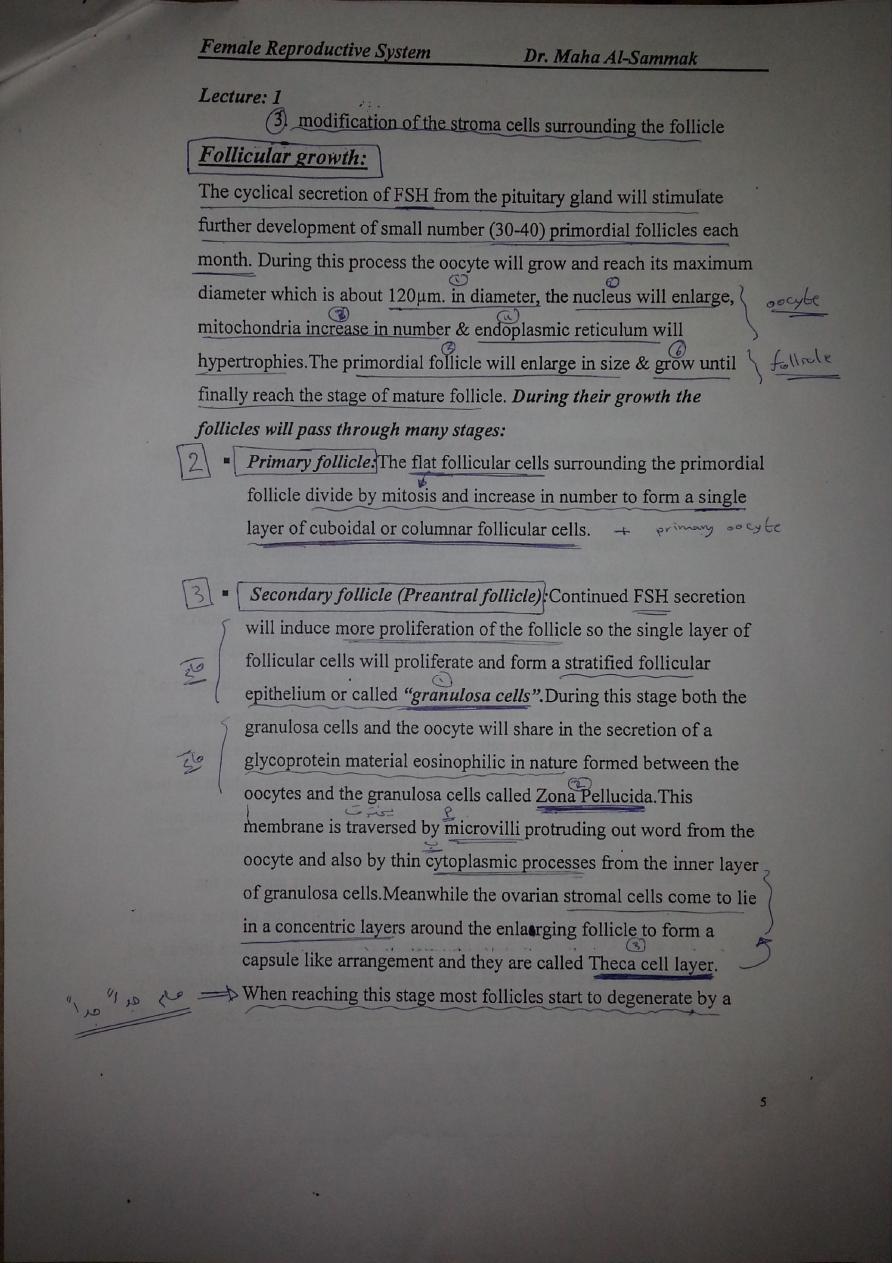 Female Reproductive System Dr. Maha Al-Sammak
Lecture: 1
3 modification of the stroma cells surrounding the follicle
Follicular growth:
The cyclical secretion of FSH from the pituitary gland will stimulate
further development of small number (30-40) primordial follicles each
month. During this process the oocyte will grow and reach its maximum
① ②
diameter which is about 120µm. in diameter, the nucleus will enlarge, oocyte
③ ④
mitochondria increase in number & endoplasmic reticulum will
⑤ ⑥
hypertrophies.The primordial follicle will enlarge in size & grow until follicle
finally reach the stage of mature follicle. During their growth the
follicles will pass through many stages:
2 ▪ Primary follicle:The flat follicular cells surrounding the primordial
follicle divide by mitosis and increase in number to form a single
layer of cuboidal or columnar follicular cells. + primary oocyte
3 ▪ Secondary follicle (Preantral follicle):Continued FSH secretion
will induce more proliferation of the follicle so the single layer of
follicular cells will proliferate and form a stratified follicular
①
epithelium or called “granulosa cells”.During this stage both the
granulosa cells and the oocyte will share in the secretion of a
glycoprotein material eosinophilic in nature formed between the
②
oocytes and the granulosa cells called Zona Pellucida.This
membrane is traversed by microvilli protruding out word from the
oocyte and also by thin cytoplasmic processes from the inner layer
of granulosa cells.Meanwhile the ovarian stromal cells come to lie
in a concentric layers around the enlarging follicle to form a
③
capsule like arrangement and they are called Theca cell layer.
هام جدا "جدا" ⇒ When reaching this stage most follicles start to degenerate by a
5